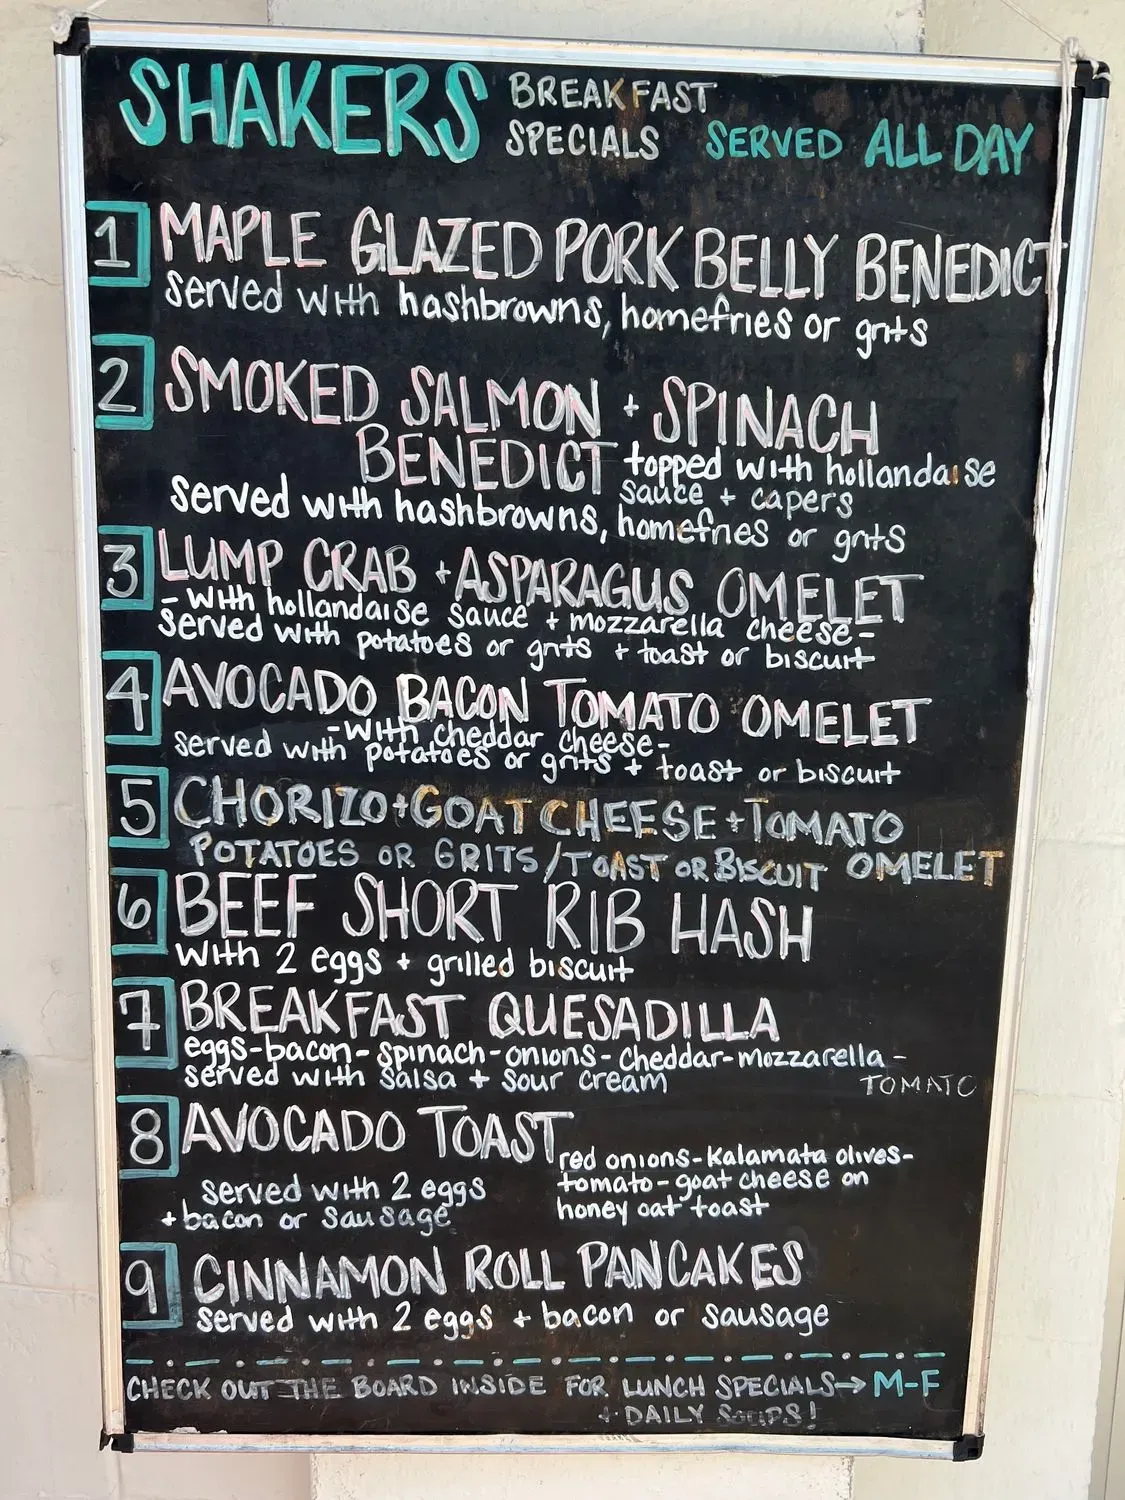 SHAKERS BREAKFAST SPECIALS SERVED ALL DAY
1 MAPLE GLAZED PORK BELLY BENEDICT
served with hashbrowns, homefries or grits
2 SMOKED SALMON + SPINACH
BENEDICT topped with hollandaise
sauce + capers
served with hashbrowns, homefries or grits
3 LUMP CRAB + ASPARAGUS OMELET
- with hollandaise sauce + mozzarella cheese -
served with potatoes or grits + toast or biscuit
4 AVOCADO BACON TOMATO OMELET
- with cheddar cheese -
served with potatoes or grits + toast or biscuit
5 CHORIZO + GOAT CHEESE + TOMATO
POTATOES OR GRITS / TOAST OR BISCUIT OMELET
6 BEEF SHORT RIB HASH
with 2 eggs + grilled biscuit
7 BREAKFAST QUESADILLA
eggs - bacon - spinach - onions - cheddar - mozzarella -
served with salsa + sour cream TOMATO
8 AVOCADO TOAST
red onions - Kalamata olives -
tomato - goat cheese on
honey oat toast
served with 2 eggs
+ bacon or sausage
9 CINNAMON ROLL PANCAKES
served with 2 eggs + bacon or sausage
CHECK OUT THE BOARD INSIDE FOR LUNCH SPECIALS → M-F
+ DAILY SOUPS!